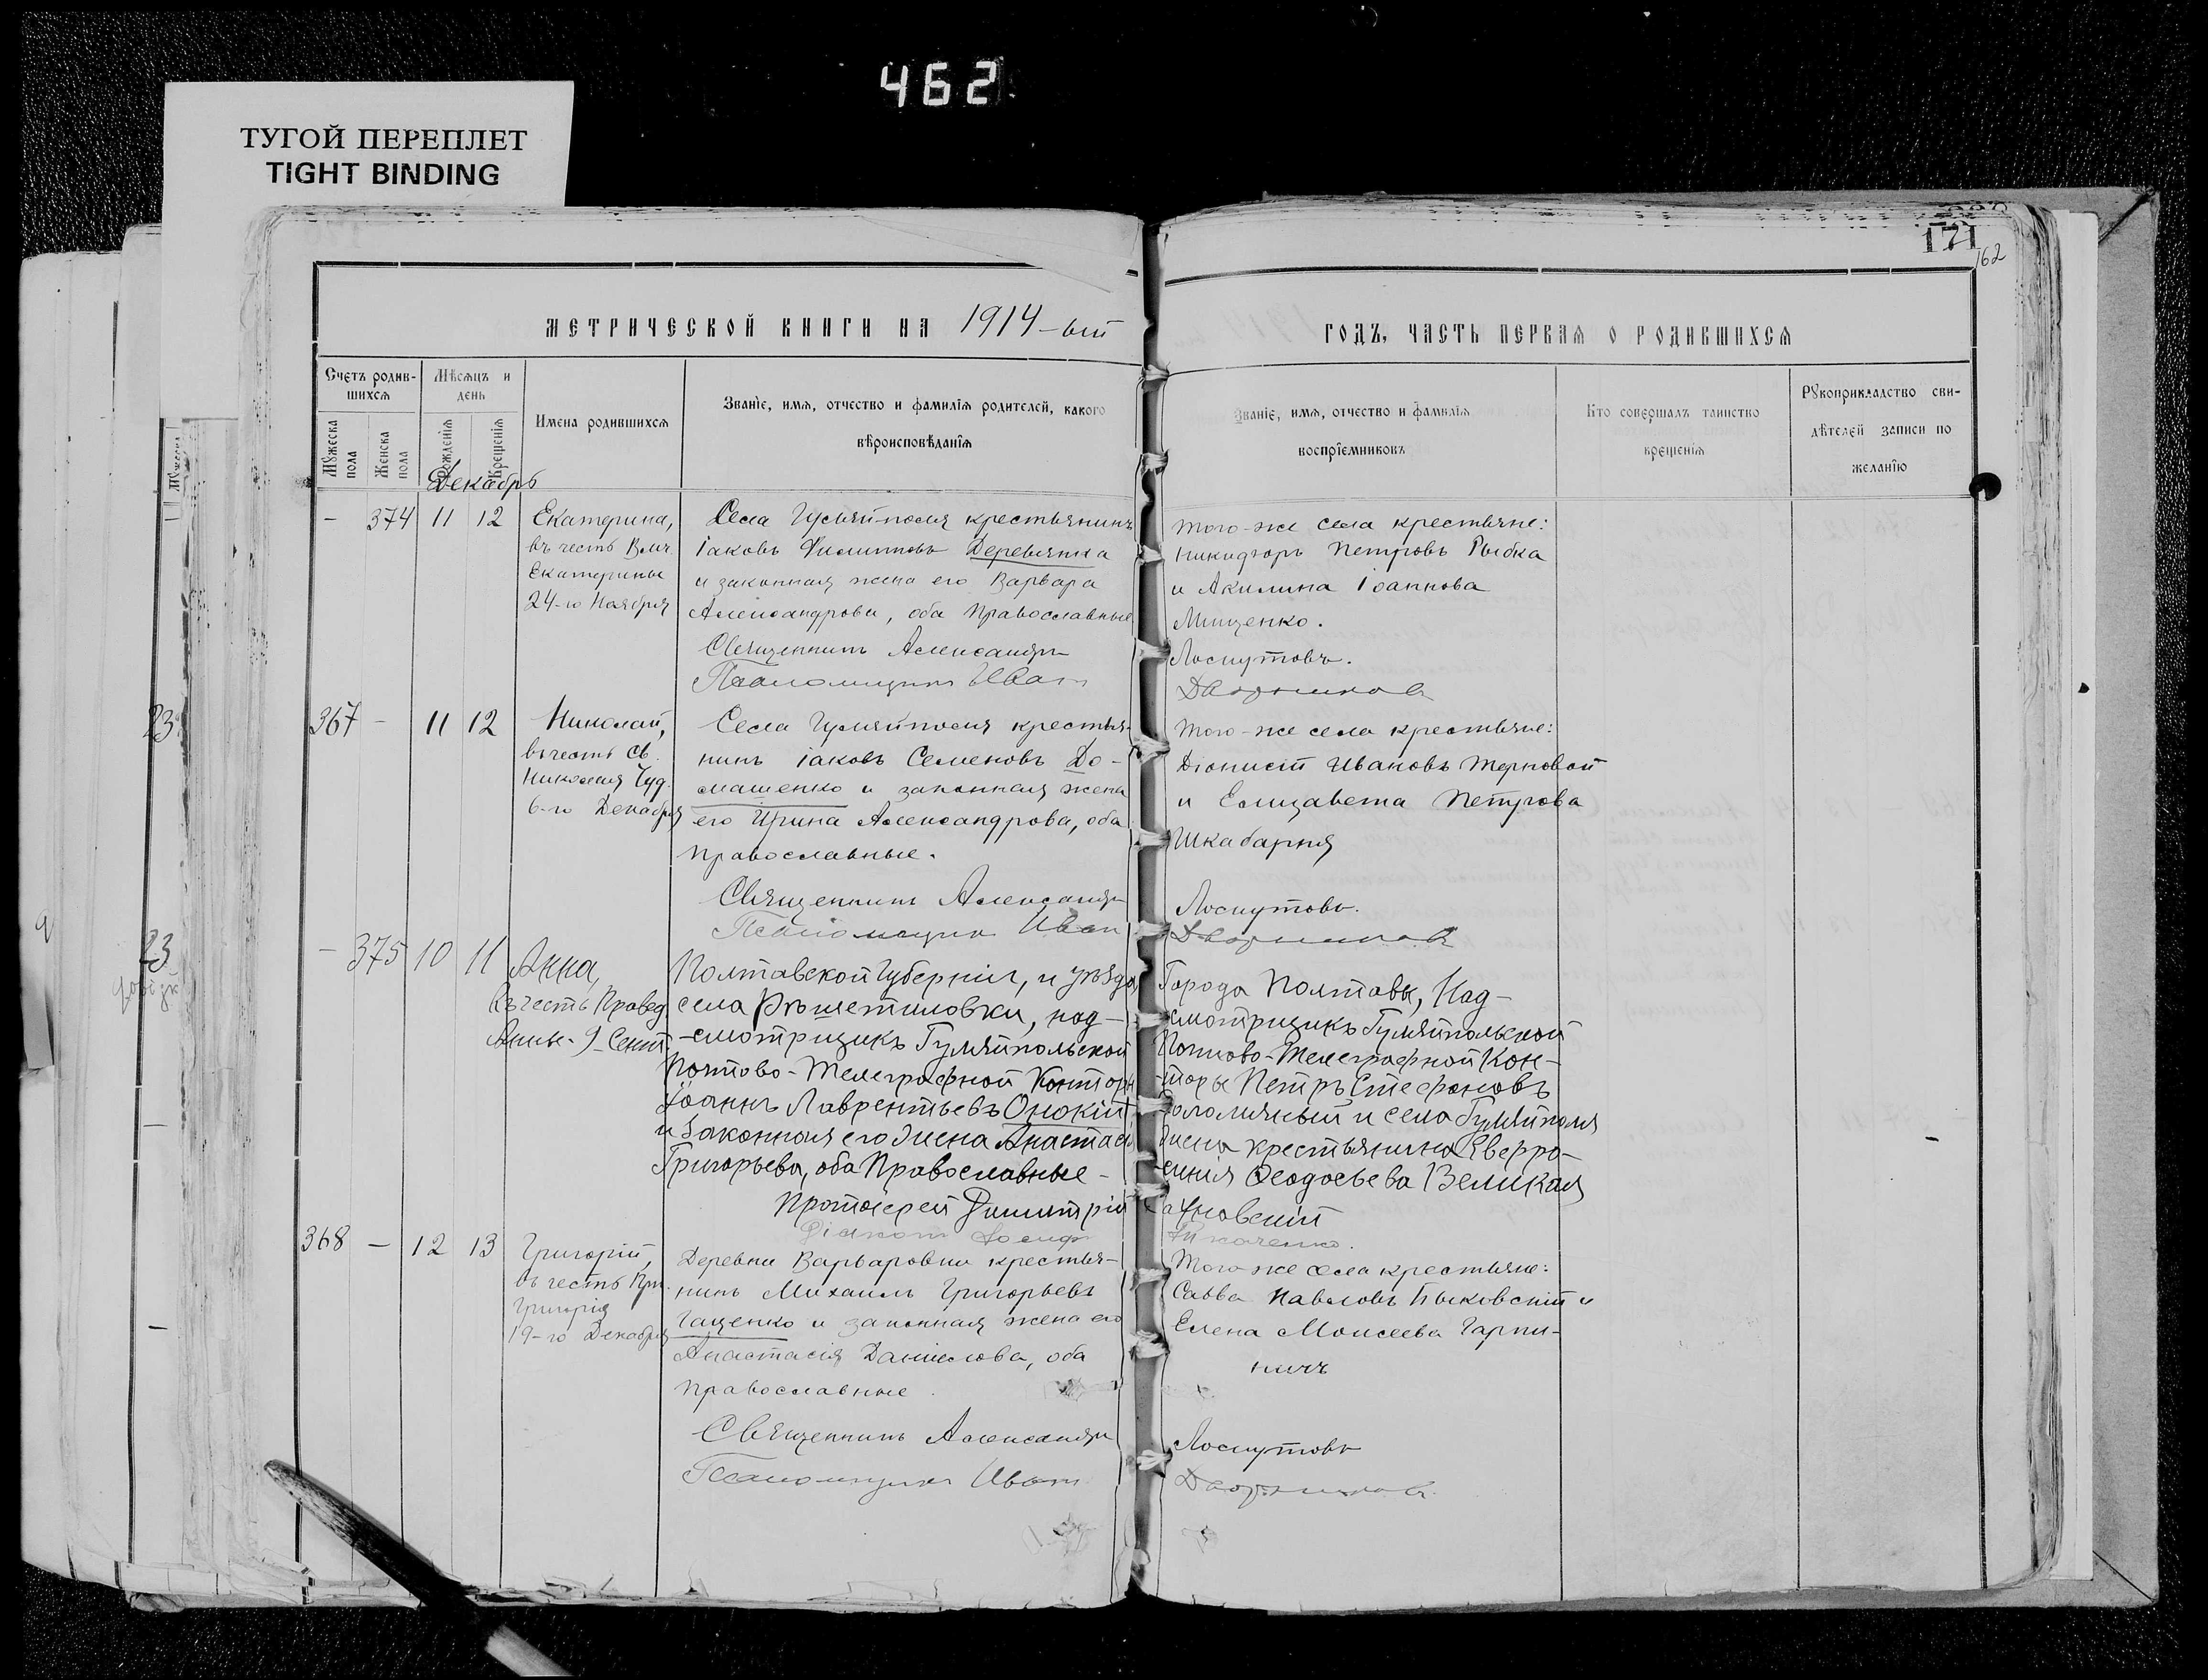 462
ТУГОЙ ПЕРЕПЛЕТ
TIGHT BINDING
171
162
МЕТРИЧЕСКОЙ КНИГИ НА 1914-ый
Счетъ родив-
шихся
Мѣсяцъ и
день
Мужеска
пола
Женска
пола
Рожденія
Крещенія
Имена родившихся
Званіе, имя, отчество и фамилія родителей, какого
вѣроисповѣданія
Декабрь
- 374 11 12
Екатерина,
въ честь Влмч.
Екатерины
24-го Ноября
Села Гуляйполя крестьянинъ
Іаковъ Филипповъ Деревянка
и законная жена его Варвара
Александрова, оба Православные
Священникъ Александръ
Псаломщикъ Иван
367 - 11 12
Николай,
въ честь Св.
Николая Чуд.
6-го Декабря
Села Гуляйполя крестья-
нинъ Іаковъ Семеновъ До-
машенко и законная жена
его Ирина Александрова, оба
православные.
Священникъ Александръ
Псаломщикъ Иван
- 375 10 11
Анна,
въ честь Правед.
Анны - 9 Сент.
Полтавской Губерніи, и уѣзда
села Рѣшетиловки, над-
-смотрщикъ Гуляйпольской
Почтово-Телеграфной Конторы
Іоаннъ Лаврентьевъ Онокій
и законная его жена Анастасія
Григорьева, оба Православные -
Протоіерей Димитрій
Діаконъ Іосифъ
368 - 12 13
Григорій,
въ честь Прп.
Григорія
19-го Декабря
Деревни Варваровки крестья-
нинъ Михаилъ Григорьевъ
Гащенко и законная жена его
Анастасія Даніилова, оба
православные.
Священникъ Александръ
Псаломщикъ Иван
ГОДЪ, ЧАСТЬ ПЕРВАЯ О РОДИВШИХСЯ
Званіе, имя, отчество и фамилія
воспріемниковъ
Кто совершалъ таинство
крещенія
Рукоприкладство сви-
дѣтелей записи по
желанію
того-же села крестьяне:
Никифоръ Петровъ Рыбка
и Акилина Іоаннова
Мищенко.
Лоскутовъ.
Дворников
того-же села крестьяне:
Діонисій Ивановъ Терновой
и Елизавета Петрова
Шкабарня
Лоскутовъ.
Дворников
Города Полтавы, Над-
смотрщикъ Гуляйпольской
Почтово-Телеграфной Кон-
-торы Петръ Стефановъ
и села Гуляйполя
жена крестьянина Евфро-
-синія Феодосьева Великая
Сахновскій
Ткаченко.
Того-же села крестьяне:
Савва Павловъ Быковскій и
Елена Моисеева Гарпи-
ничъ
Лоскутовъ
Дворников
23
23